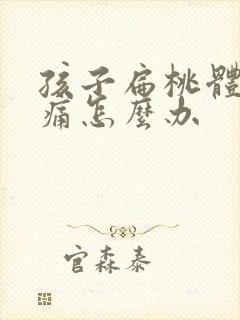 孩子扁桃體
痛怎麼办
官森泰